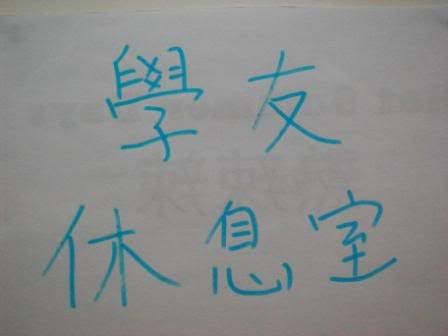 學友
休息室